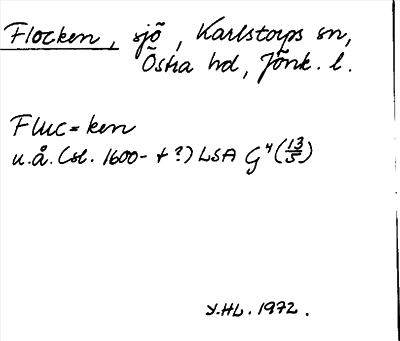 Flocken, sjö, Karlstorps sn,
Östra hd, Jönk. l.
Fluc=ken
u.å. (sl. 1600- t ?) LSA G4 (13/5)
Y.HL. 1972.